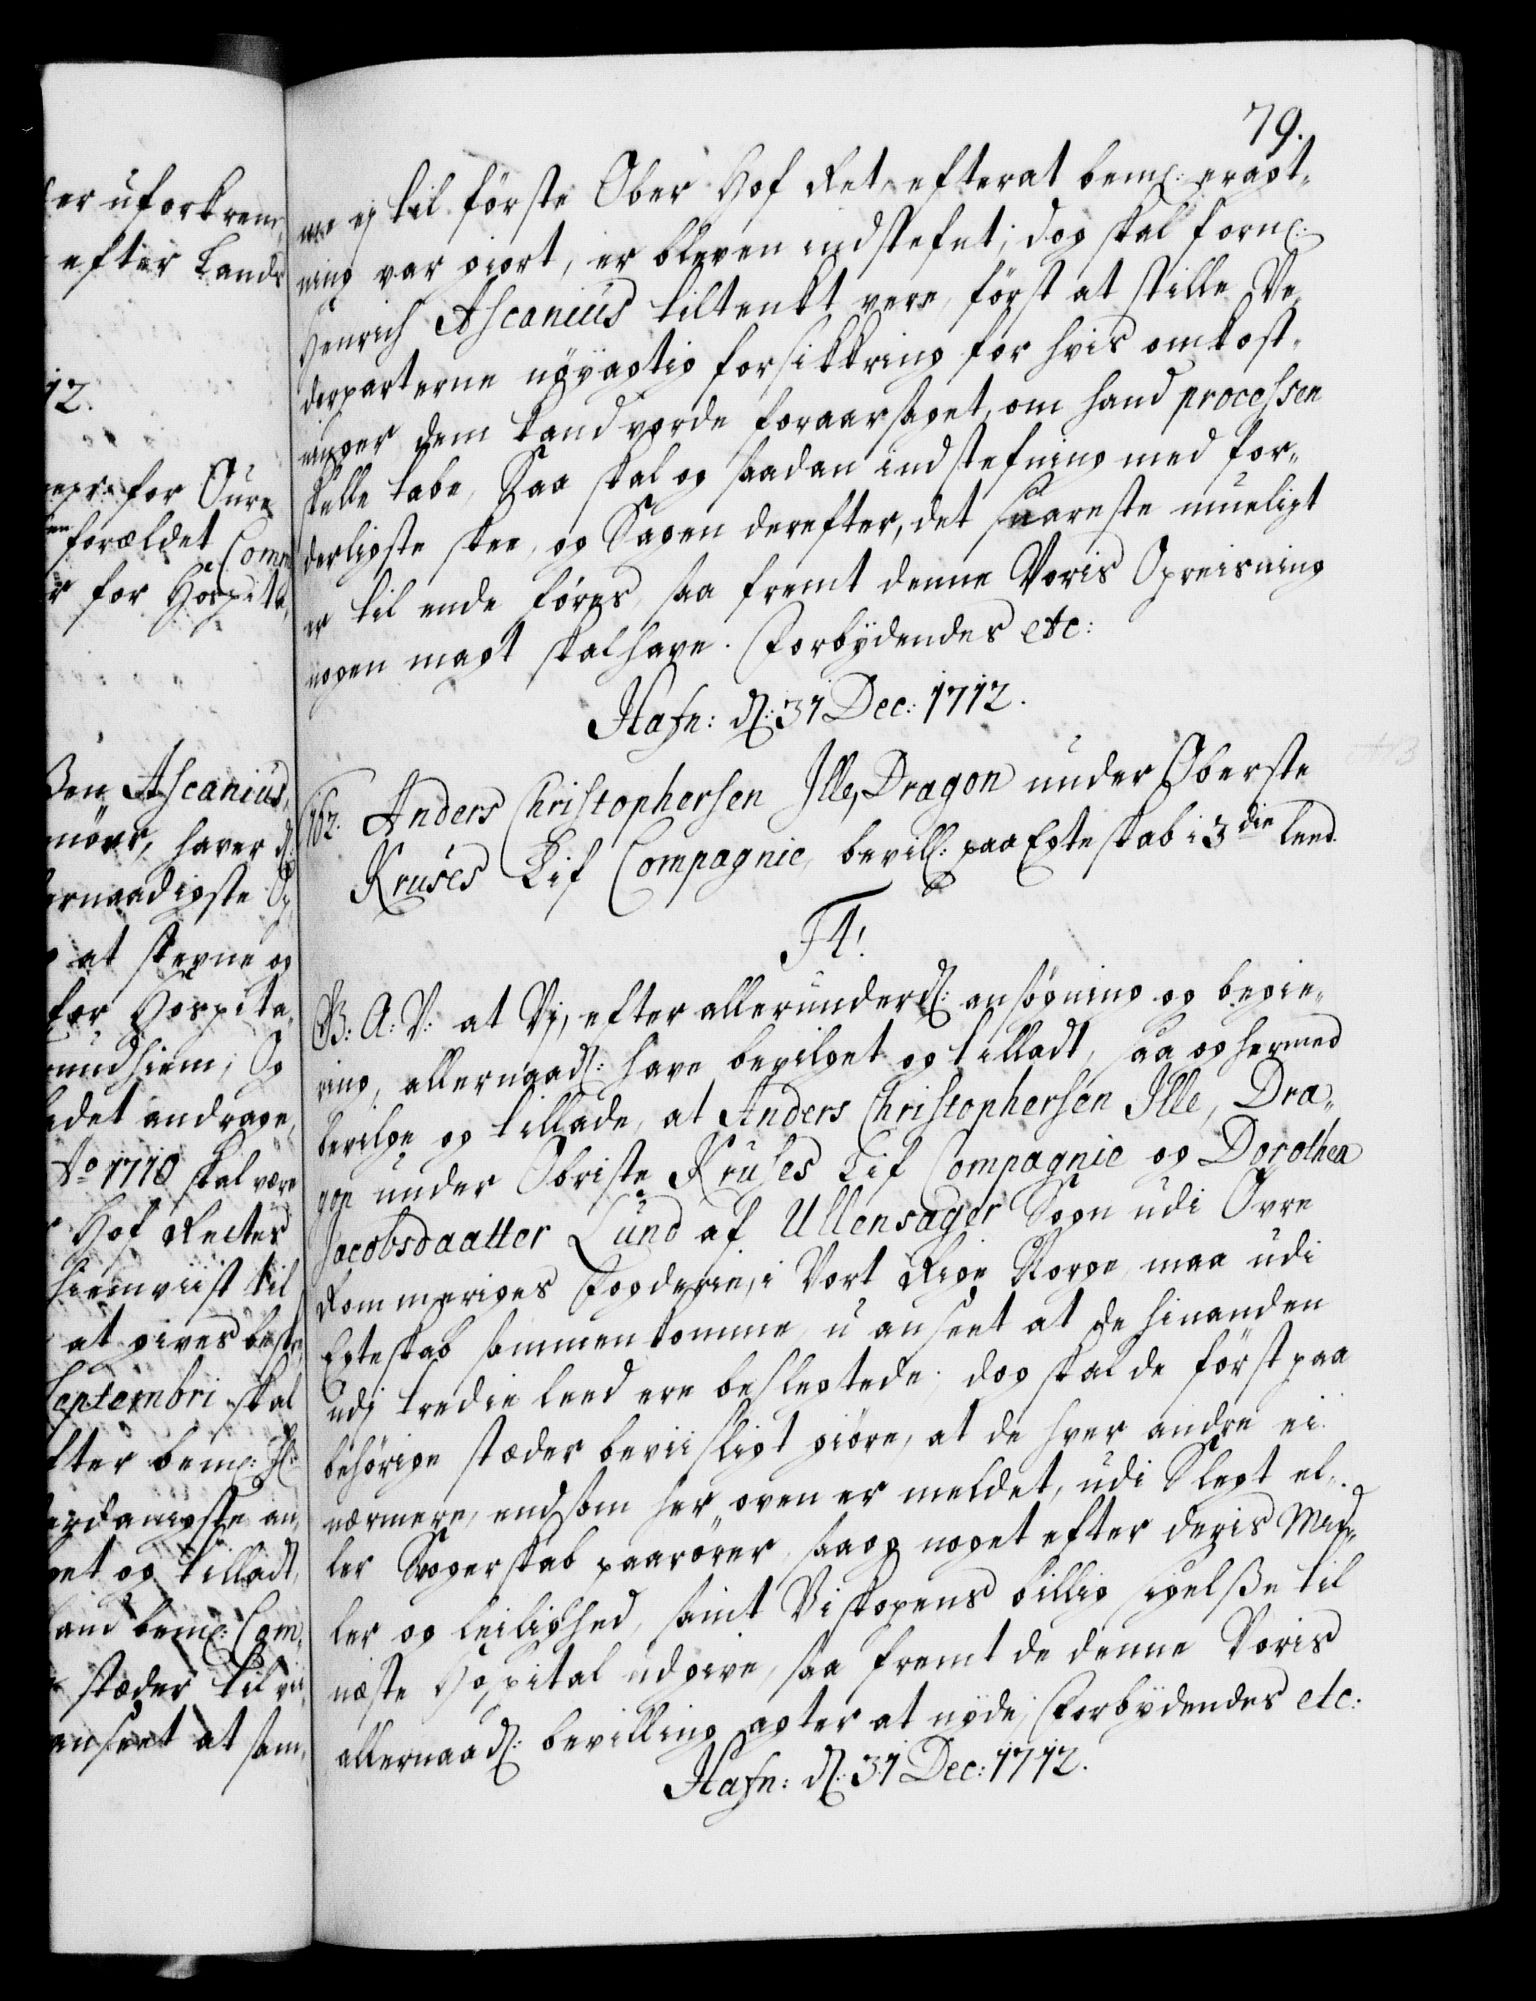 79.
me ej til förste Ober Hof Ret, efterat bemt: eragt-
ning var giort, er bleven indstefnt; dog skal fornt:
Henrich Ascanius tiltenkt vere, först at stille Ve-
derparterne nöyagtig forsikkring for hvis omkost-
ninger dem kand vorde foraarsaget, om hand processen
skulle tabe, Saa skal og saadan indstefning med for-
derligste skee, og Sagen derefter, det snareste mueligt
er til ende föres, saa fremt denne Voris Opreisning
nogen magt skal have. Forbÿdendes etc:
Hafn: d: 31 Dec: 1712.
162. Anders Christophersen Ille, Dragon under Oberste
Kruses Lif Compagnie, bevill: paa Egteskab i 3die leed.
F4!
G: A: V: at Vj, efter allerunderd: ansögning og begie-
ring, allernaad: have bevilget og tilladt, saa og hermed
bevilge og tillade, at Anders Christophersen Ille, Dra-
gon under Obriste Kruses Lif Compagnie og Dorothea
Jacobsdaatter Lund af Ullensager Sogn udi Övre
Rommeriges Fogderie, i Vort Rige Norge, maa udi
Egteskab sammenkomme, u anseet at de hinanden
udj tredie leed ere beslegtede; dog skal de först paa
behörige stæder beviisligt giöre, at de hver andre ei
nærmere, end som her oven er meldet, udi Slegt el-
ler Svogerskab paarörer, saa og noget efter deris Mid-
ler og leilighed, samt Biskopens billig sigelße til
neste Hospital udgive, saa fremt de denne Voris
allernaad: bevilling agter at nyde, Forbÿdendes etc:
Hafn: d: 31 Dec: 1712.
er uforkrenk-
efter Lands
12.
for Öure
forældet Com
r for Hospita-
ßen Ascanius,
haver d:
ernaadigste Op
at stevne og
for Hospita-
rundhiem; Og
edet andrage,
Ao 1710 skal være
Hof Rettes
hiemviist til
at gives besk
Septembri skal
fter bemt:
erdanigste an-
get og tilladt,
and bemt: Com-
stæder til vii
anseet at sam-